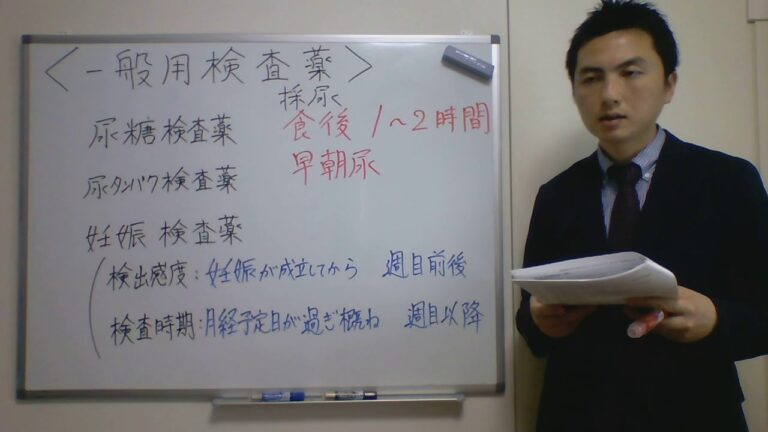 〈一般用検査薬〉
採尿
尿糖検査薬 食後 1〜2時間
尿タンパク検査薬 早朝尿
妊娠検査薬
検出感度:妊娠が成立してから 週目前後
検査時期:月経予定日が過ぎ概ね 週目以降